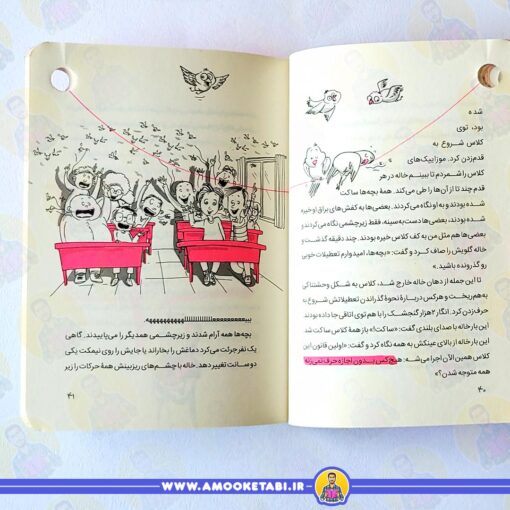 شده
بود، توی
کلاس شروع به
قدم‌زدن کرد. موزاییک‌های
کلاس را شمردم تا ببینم خاله در هر
قدم چند تا از آن‌ها را طی می‌کند. همهٔ بچه‌ها ساکت
شده بودند و به او نگاه می‌کردند. بعضی‌ها به کفش‌های براق او خیره
شده بودند، بعضی‌ها دست‌به‌سینه، فقط زیرچشمی نگاه می‌کردند و
بعضی‌ها هم مثل من به کف کلاس خیره بودند. چند دقیقه گذشت و
خاله گلویش را صاف کرد و گفت: «بچه‌ها، امیدوارم تعطیلات خوبی
رو گذرونده باشید.»
تا این جمله از دهان خاله خارج شد، کلاس به شکل وحشتناکی
به‌هم ریخت و هرکس دربارهٔ نحوهٔ گذراندن تعطیلاتش شروع به
حرف‌زدن کرد. انگار ۲هزار گنجشک را با هم توی اتاقی جا داده بودند.
این بار خاله با صدای بلندی گفت: «ساکت!» باز همهٔ کلاس ساکت شد.
این بار خاله از بالای عینکش به همه نگاه کرد و گفت: «اولین قانون این
کلاس همین الآن اجرا می‌شه: هیچ‌کس بدون اجازه حرف نمی‌زنه.
همه متوجه شدن؟»
۴۰
بچه‌ها همه آرام شدند و زیرچشمی همدیگر را می‌پاییدند. گاهی
یک نفر جرئت می‌کرد دماغش را بخاراند یا جایش را روی نیمکت یکی
دو سانت تغییر دهد. خاله با چشم‌های ریزبینش همهٔ حرکات را زیر
۴۱
WWW.AMOOKETABI.IR